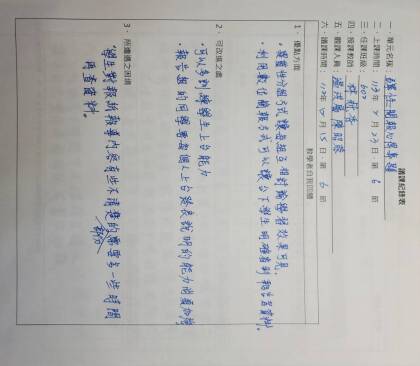 議課紀錄表
一、單元名稱：彈性簡報心得專題
二、上課時間：113年 月23日，第 6 節
三、任課班級：602
四、授課教師：林
五、觀課人員：溫 陳昭蓉
六、議課時間：112年 月15日，第 6 節
教學者自我回饋
1、優點方面
・異質性分組方式讓每組互相討論學習效果可見。
・利用數位簡報方式可以讓台下學生明確看到報告者資料。
2、可改進之處
・可以多訓練學生上台能力
・報告組的同學要每個人上台發表說明的能力需要加強
3、所遭遇之困境
學生對報紙報導內容有些不清楚的部份需要多一些時間
再查資料。